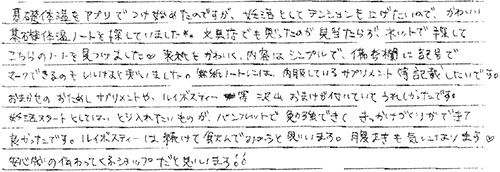 基礎体温をアプリでつけ始めたのですが、妊活としてテンションも上げたいので、かわいい
基礎体温ノートを探していました。文具店でも買ったのが見当たらず ネットで探して
こちらのノートを見つけました♡ 表紙もかわいく、内容はシンプルで、備考欄に記号で
マークできるのもいいなと思いました。無紙ノートには、内服しているサプリメント 記載したいです。
おまかせの おためしサプリメントや、ルイボスティー等 沢山 おまけが付いていて うれしかったです。
妊活スタートとしては、とり入れたいものが、パンフレットで勉強できて きっかけづくりができて
良かったです。ルイボスティーは続けて飲んでみようと思います。腹まきも気になります♡
安心感の伝わってくるショップだと思います